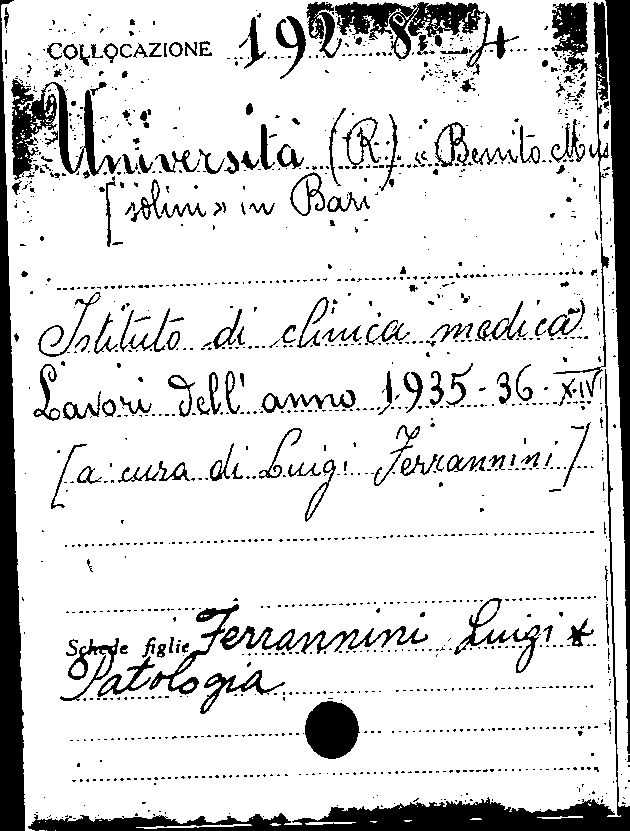 COLLOCAZIONE 192 8 4
Università (R.) «Benito Mus
[solini» in Bari
Istituto di clinica medica
Lavori dell'anno 1935-36-XIV
[a cura di Luigi Ferrannini]
Schede figlie Ferrannini Luigi *
Patologia